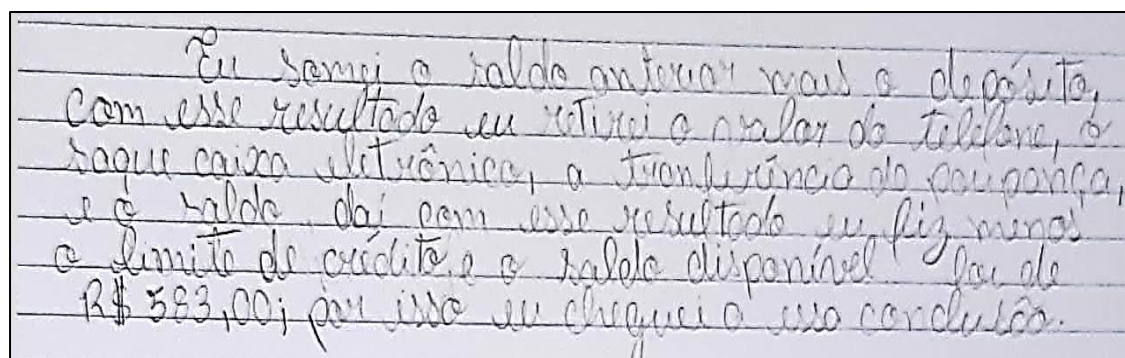 Eu somei o saldo anterior mais o depósito,
com esse resultado eu retirei o valor do telefone, o
saque caixa eletrônica, a tranferência da poupança,
e o saldo, daí com esse resultado eu fiz menos
o limite de crédito, e o saldo disponível foi de
R$ 583,00; por isso eu cheguei a essa conclusão.